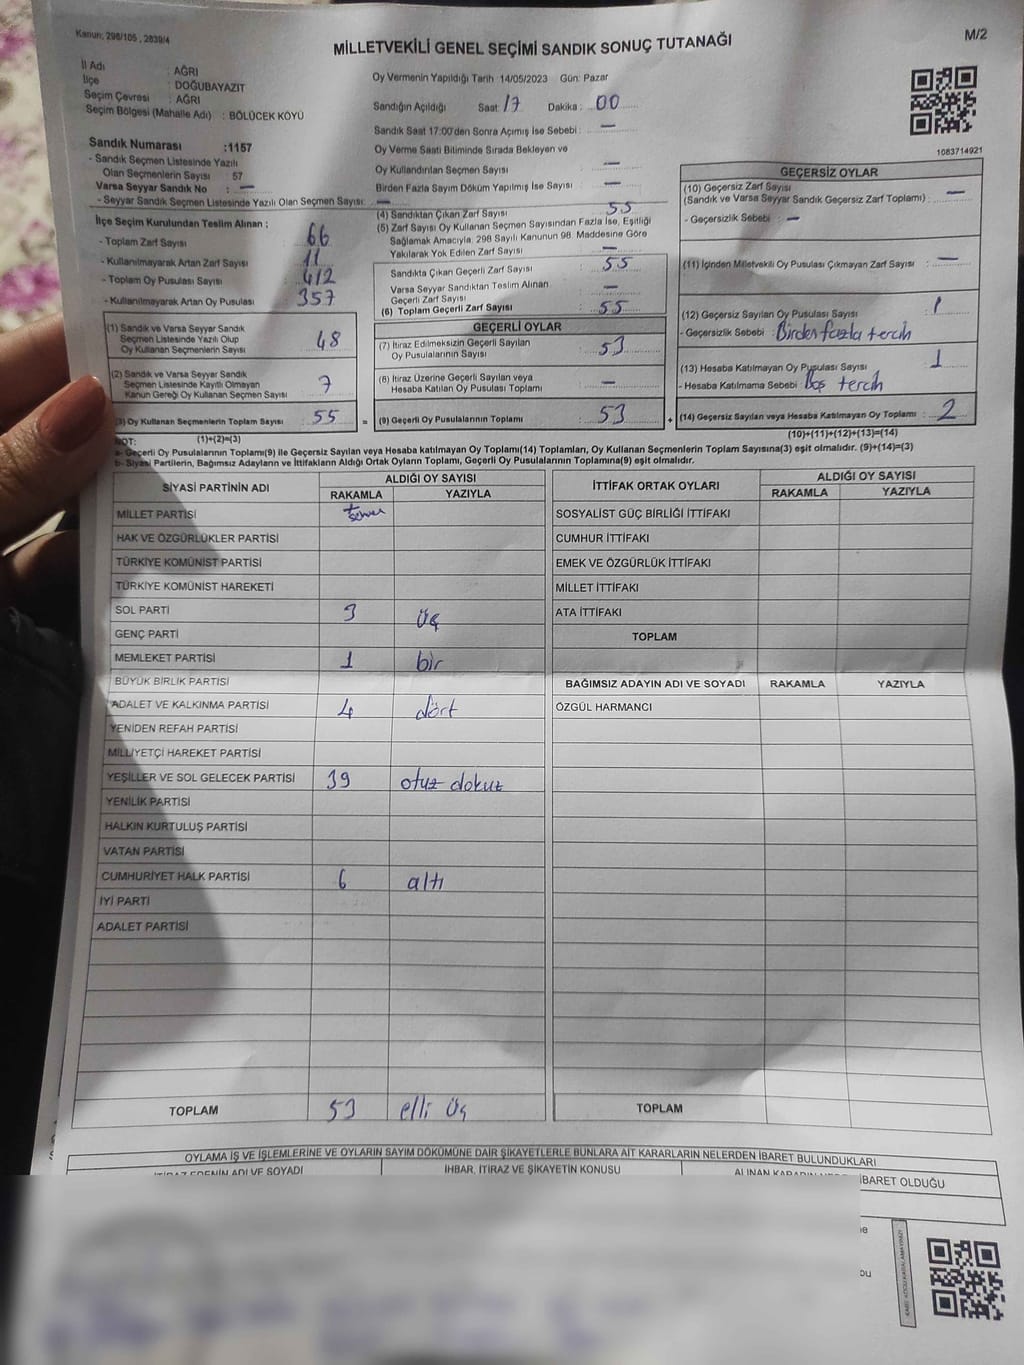 Kanun: 298/105 , 2839/4
MİLLETVEKİLİ GENEL SEÇİMİ SANDIK SONUÇ TUTANAĞI
M/2
İl Adı : AĞRI
İlçe : DOĞUBAYAZIT
Seçim Çevresi : AĞRI
Seçim Bölgesi (Mahalle Adı) : BÖLÜCEK KÖYÜ
Sandık Numarası :1157
- Sandık Seçmen Listesinde Yazılı
Olan Seçmenlerin Sayısı : 57
Varsa Seyyar Sandık No : —
- Seyyar Sandık Seçmen Listesinde Yazılı Olan Seçmen Sayısı: —
Oy Vermenin Yapıldığı Tarih 14/05/2023 Gün: Pazar
Sandığın Açıldığı Saat: 17 Dakika : 00
Sandık Saat 17:00'den Sonra Açımış İse Sebebi : —
Oy Verme Saati Bitiminde Sırada Bekleyen ve
Oy Kullandırılan Seçmen Sayısı —
Birden Fazla Sayım Döküm Yapılmış İse Sayısı —
1083714921
İlçe Seçim Kurulundan Teslim Alınan ;
- Toplam Zarf Sayısı : 66
- Kullanılmayarak Artan Zarf Sayısı : 11
- Toplam Oy Pusulası Sayısı : 412
- Kullanılmayarak Artan Oy Pusulası : 357
(1) Sandık ve Varsa Seyyar Sandık
Seçmen Listesinde Yazılı Olup
Oy Kullanan Seçmenlerin Sayısı : 48
(2) Sandık ve Varsa Seyyar Sandık
Seçmen Listesinde Kayıtlı Olmayan
Kanun Gereği Oy Kullanan Seçmen Sayısı : 7
(3) Oy Kullanan Seçmenlerin Toplam Sayısı : 55 =
(4) Sandıktan Çıkan Zarf Sayısı 55
(5) Zarf Sayısı Oy Kullanan Seçmen Sayısından Fazla İse, Eşitliği
Sağlamak Amacıyla, 298 Sayılı Kanunun 98. Maddesine Göre
Yakılarak Yok Edilen Zarf Sayısı —
Sandıkta Çıkan Geçerli Zarf Sayısı : 55
Varsa Seyyar Sandıktan Teslim Alınan
Geçerli Zarf Sayısı : —
(6) Toplam Geçerli Zarf Sayısı : 55
GEÇERLİ OYLAR
(7) İtiraz Edilmeksizin Geçerli Sayılan
Oy Pusulalarının Sayısı : 53
(8) İtiraz Üzerine Geçerli Sayılan veya
Hesaba Katılan Oy Pusulası Toplamı : —
(9) Geçerli Oy Pusulalarının Toplamı : 53 +
GEÇERSİZ OYLAR
(10) Geçersiz Zarf Sayısı : —
(Sandık ve Varsa Seyyar Sandık Geçersiz Zarf Toplamı)
- Geçersizlik Sebebi : —
(11) İçinden Milletvekili Oy Pusulası Çıkmayan Zarf Sayısı : —
(12) Geçersiz Sayılan Oy Pusulası Sayısı : 1
- Geçersizlik Sebebi : Birden fazla tercih
(13) Hesaba Katılmayan Oy Pusulası Sayısı : 1
- Hesaba Katılmama Sebebi : Boş tercih
(14) Geçersiz Sayılan veya Hesaba Katılmayan Oy Toplamı : 2
NOT: (1)+(2)=(3)
(10)+(11)+(12)+(13)=(14)
a- Geçerli Oy Pusulalarının Toplamı(9) ile Geçersiz Sayılan veya Hesaba katılmayan Oy Toplamı(14) Toplamları, Oy Kullanan Seçmenlerin Toplam Sayısına(3) eşit olmalıdır. (9)+(14)=(3)
b- Siyasi Partilerin, Bağımsız Adayların ve İttifakların Aldığı Ortak Oyların Toplamı, Geçerli Oy Pusulalarının Toplamına(9) eşit olmalıdır.
SİYASİ PARTİNİN ADI ALDIĞI OY SAYISI
RAKAMLA YAZIYLA
MİLLET PARTİSİ
HAK VE ÖZGÜRLÜKLER PARTİSİ
TÜRKİYE KOMÜNİST PARTİSİ
TÜRKİYE KOMÜNİST HAREKETİ
SOL PARTİ 3 üç
GENÇ PARTİ
MEMLEKET PARTİSİ 1 bir
BÜYÜK BİRLİK PARTİSİ
ADALET VE KALKINMA PARTİSİ 4 dört
YENİDEN REFAH PARTİSİ
MİLLİYETÇİ HAREKET PARTİSİ
YEŞİLLER VE SOL GELECEK PARTİSİ 39 otuz dokuz
YENİLİK PARTİSİ
HALKIN KURTULUŞ PARTİSİ
VATAN PARTİSİ
CUMHURİYET HALK PARTİSİ 6 altı
İYİ PARTİ
ADALET PARTİSİ
TOPLAM 53 elli üç
İTTİFAK ORTAK OYLARI ALDIĞI OY SAYISI
RAKAMLA YAZIYLA
SOSYALİST GÜÇ BİRLİĞİ İTTİFAKI
CUMHUR İTTİFAKI
EMEK VE ÖZGÜRLÜK İTTİFAKI
MİLLET İTTİFAKI
ATA İTTİFAKI
TOPLAM
BAĞIMSIZ ADAYIN ADI VE SOYADI RAKAMLA YAZIYLA
ÖZGÜL HARMANCI
TOPLAM
OYLAMA İŞ VE İŞLEMLERİNE VE OYLARIN SAYIM DÖKÜMÜNE DAİR ŞİKAYETLERLE BUNLARA AİT KARARLARIN NELERDEN İBARET BULUNDUKLARI
İTİRAZ EDENİN ADI VE SOYADI İHBAR, İTİRAZ VE ŞİKAYETİN KONUSU
İBARET OLDUĞU